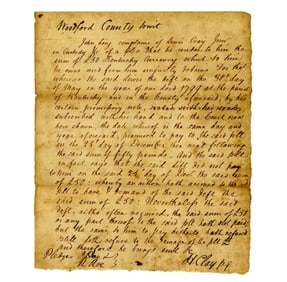 Woodford County Court
John Long complains of Lewis Craig Junr
in Custody &c of a plea that he render to him the
sum of £50 Kentucky Currency which to him
he owes and from him unjustly detains For that
whereas the said Lewis the deft on the 30th day
of May in the year of our Lord 1798 at the parish
of Kentucky and in the County aforesaid, by his
certain promissory note,
subscribed with his hand and to the Court now
here shown, the date whereof is the same day and
year aforesaid, promised to pay to the said plt
on the 25 day of December then next following
the said sum of fifty pounds. And the said plt
in fact says that the said deft did not pay
to him on the said 25 day of Decr the said sum
of £50; whereby an action hath accrued to the
plt to have & demand of the said deft the
said sum of £50. Nevertheless the said
deft, altho often required, the said sum of £50
or any part thereof to the said plt hath not paid
but the same to him to pay hitherto hath refused
& still doth refuse to the damage of the plt
and therefore he brings suit &c
Pledges &c
Doe &
R Roe
H Clay p.q.